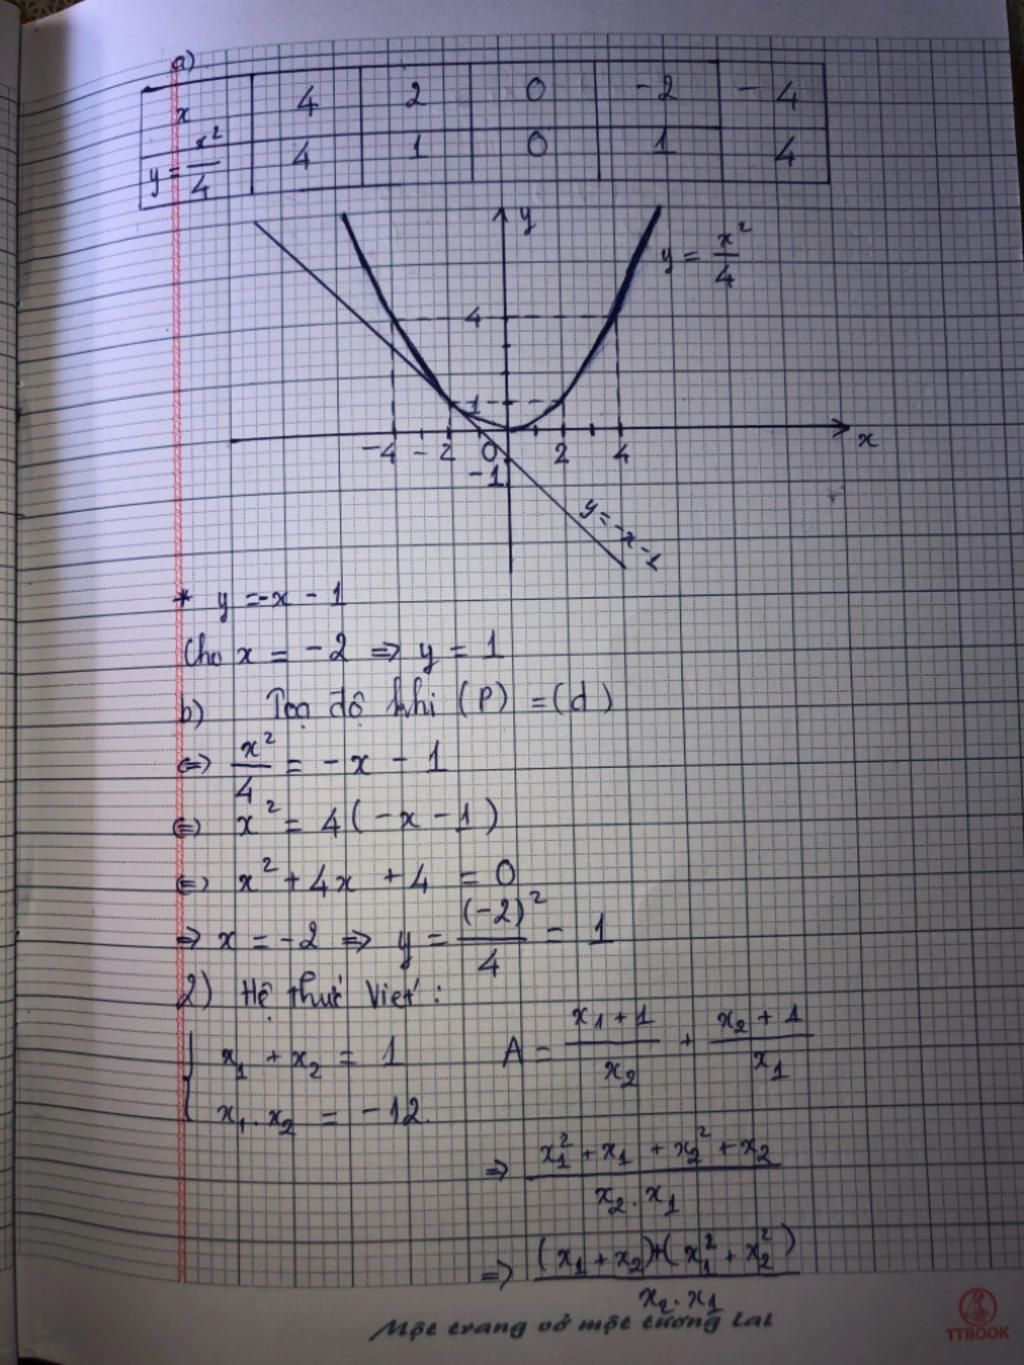 a)
x 4 2 0 -2 -4
y = x²/4 4 1 0 1 4
y
y = x²/4
4
1
-4 -2 0 2 4 x
-1
y = -x -1
* y = -x - 1
Cho x = -2 => y = 1
b) Toạ độ khi (P) = (d)
<=> x²/4 = -x - 1
<=> x² = 4(-x - 1)
<=> x² + 4x + 4 = 0
=> x = -2 => y = (-2)²/4 = 1
2) Hệ thức Viet :
{ x₁ + x₂ = 1
x₁ . x₂ = -12.
A = (x₁ + 1)/x₂ + (x₂ + 1)/x₁
=> (x₁² + x₁ + x₂² + x₂)/(x₂ . x₁)
=> ((x₁ + x₂)+(x₁² + x₂²))/(x₂ . x₁)
Một trang vở một tương lai
TTBOOK